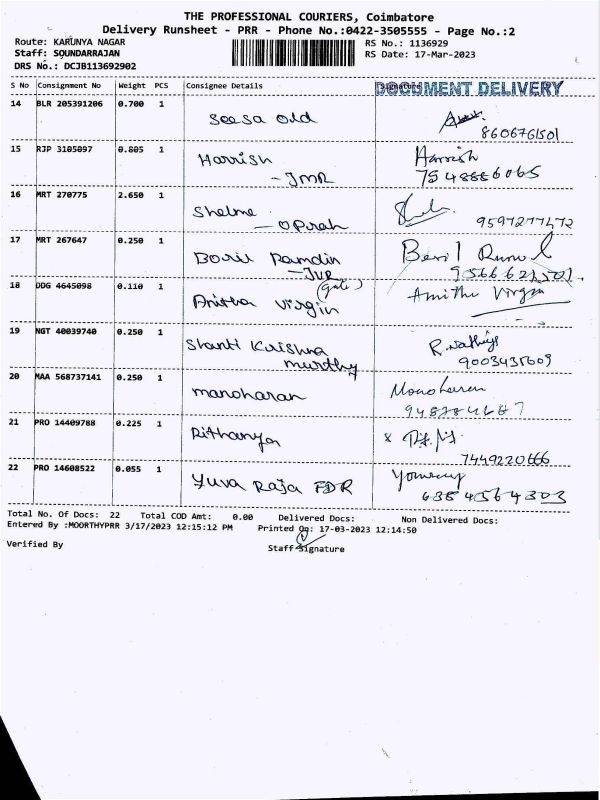 THE PROFESSIONAL COURIERS, Coimbatore
Delivery Runsheet - PRR - Phone No.:0422-3505555 - Page No.:2
Route: KARUNYA NAGAR
RS No.: 1136929
Staff: SOUNDARRAJAN
RS Date: 17-Mar-2023
DRS No.: DCJB113692902
S No Consignment No Weight PCS Consignee Details Signature
DOCUMENT DELIVERY
14 BLR 205391206 0.700 1
Seesa old
8606761501
15 RJP 3105097 0.805 1
Harrish Harrish
- JMR 7548886065
16 MRT 270775 2.650 1
Shelme
- OPrah 9597277472
17 MRT 267647 0.250 1
Boril Ramdin
- JVR
18 DDG 4645098 0.110 1
(gate)
Anitha Virgin Amitha Virgin
19 NGT 40039740 0.250 1
Shanti Krishna
murthy 9003435609
20 MAA 568737141 0.250 1
manoharan Manoharan
21 PRO 14409788 0.225 1
Rithanya
7449220666
22 PRO 14608522 0.055 1
Yuva Raja FDR
6384564303
Total No. Of Docs: 22 Total COD Amt: 0.00 Delivered Docs: Non Delivered Docs:
Entered By :MOORTHYPRR 3/17/2023 12:15:12 PM Printed On: 17-03-2023 12:14:50
Verified By
Staff Signature